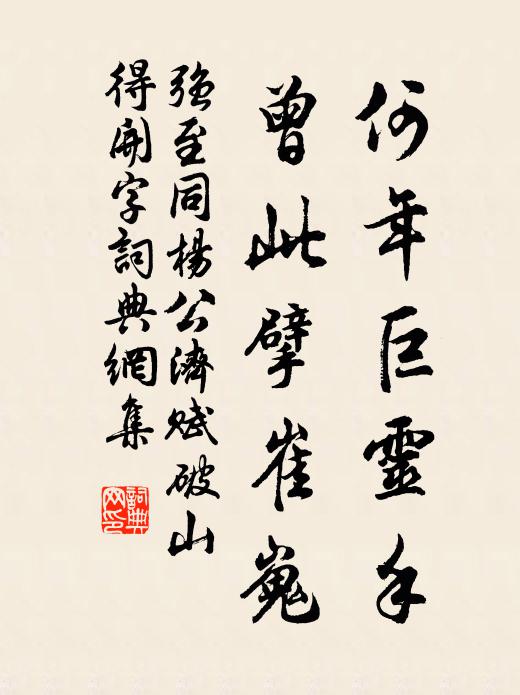 何年巨靈手
曾此擘崔嵬
強至同楊公濟賦破山
得開字詞典網集
詞典
网印